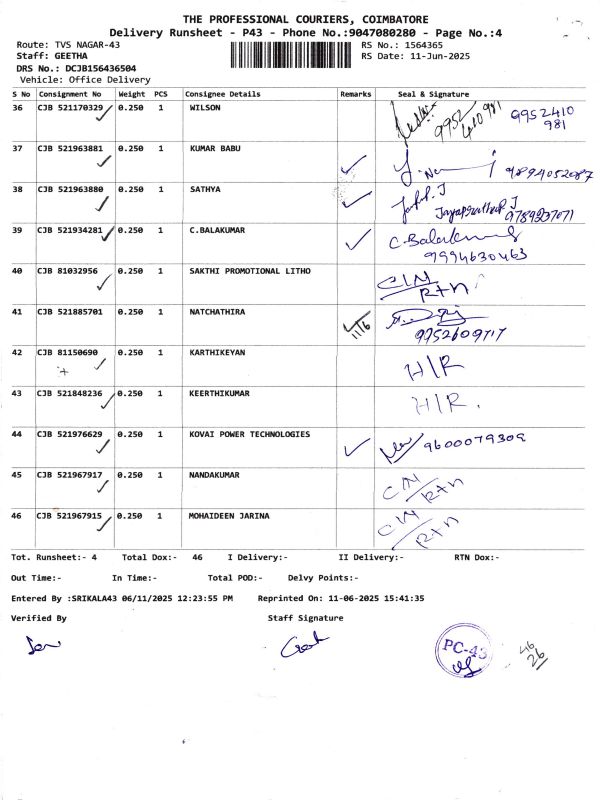 THE PROFESSIONAL COURIERS, COIMBATORE
Delivery Runsheet - P43 - Phone No.:9047080280 - Page No.:4
Route: TVS NAGAR-43 RS No.: 1564365
Staff: GEETHA RS Date: 11-Jun-2025
DRS No.: DCJB156436504
Vehicle: Office Delivery
S No Consignment No Weight PCS Consignee Details Remarks Seal & Signature
36 CJB 521170329 0.250 1 WILSON 9952410981 9952410
981
37 CJB 521963881 0.250 1 KUMAR BABU 9894052087
38 CJB 521963880 0.250 1 SATHYA
39 CJB 521934281 0.250 1 C.BALAKUMAR C.Balakumar
9994630463
40 CJB 81032956 0.250 1 SAKTHI PROMOTIONAL LITHO C/N
Rtn
41 CJB 521885701 0.250 1 NATCHATHIRA 11/6
9952609717
42 CJB 81150690 0.250 1 KARTHIKEYAN H/R
43 CJB 521848236 0.250 1 KEERTHIKUMAR H/R.
44 CJB 521976629 0.250 1 KOVAI POWER TECHNOLOGIES 9600079309
45 CJB 521967917 0.250 1 NANDAKUMAR C/N
Rtn
46 CJB 521967915 0.250 1 MOHAIDEEN JARINA C/N
Rtn
Tot. Runsheet:- 4 Total Dox:- 46 I Delivery:- II Delivery:- RTN Dox:-
Out Time:- In Time:- Total POD:- Delvy Points:-
Entered By :SRIKALA43 06/11/2025 12:23:55 PM Reprinted On: 11-06-2025 15:41:35
Verified By Staff Signature
PC-43
46
26